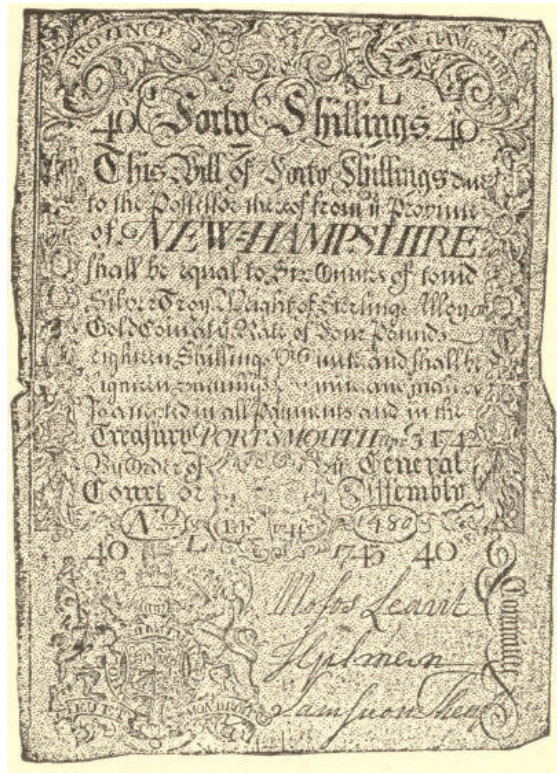 PROVINCE NEW HAMPSHIRE
L
40 Forty Shillings 40
This Bill of Forty Shillings due
to the Possessor thereof from yͤ Province
of NEW-HAMPSHIRE
shall be equal to Six Ounces of
Silver Troy Weight of Sterling Alloy or
Gold Coin at yͤ Rate of Four Pounds
eighteen Shillings and shall be
accepted in all Payments and in the
Treasury PORTSMOUTH 3 174
By Order of yͤ General
Court or Assembly
Nº 1480
40 L 1743 40
Moses Leavit
Gilman
DIEU ET MON DROIT
Committee